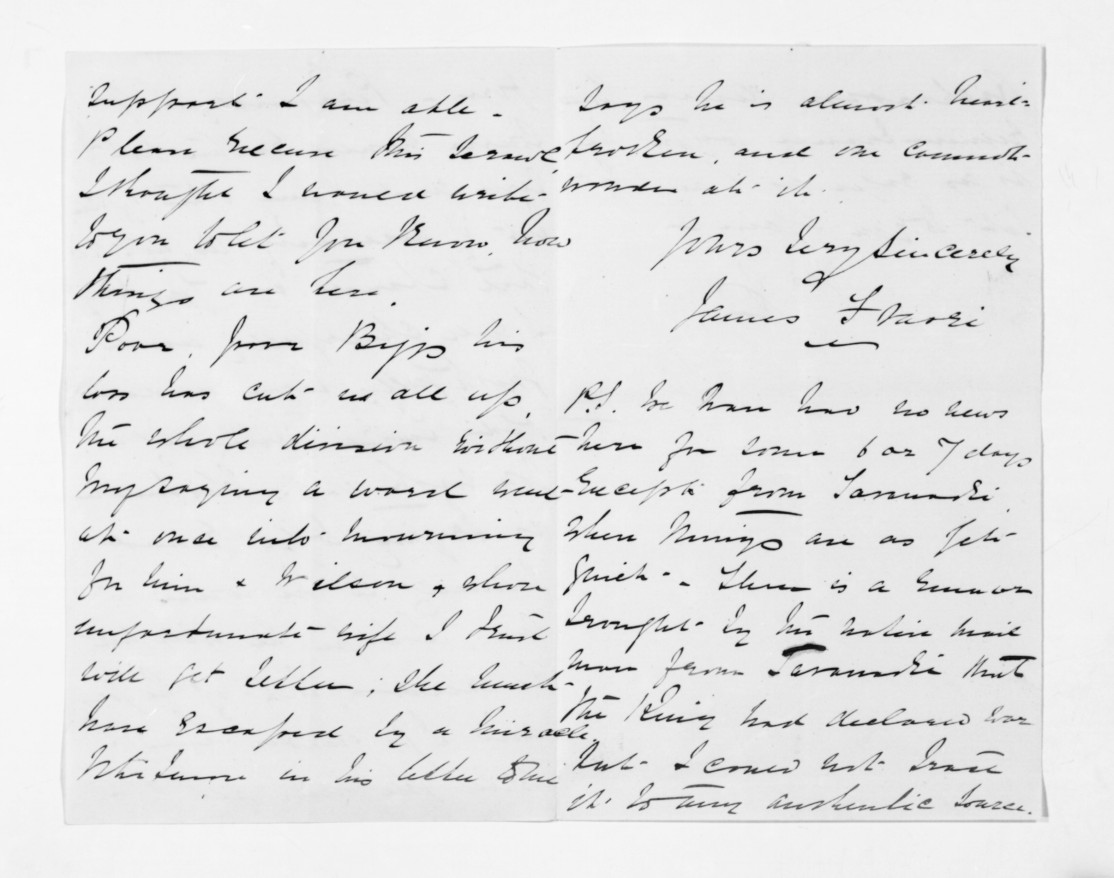 support I am able.
Please excuse this scrawl
I thought I would write
to you to let you know how
things are here.
Poor, poor Biggs his
loss has cut us all up,
the whole division without
my saying a word went
at once into mourning
for him & Wilson, whose
unfortunate wife I trust
will get better; she must
have escaped by a miracle.
Whitmore in his letter to me
says he is almost heart-
broken, and one cannot
wonder at it.
Yours Very Sincerely
James Fraser
P.S. We have had no news
here for some 6 or 7 days
except from Taranaki,
where things are as yet
quiet. There is a rumour
brought by the native mail
man from Taranaki that
the King had declared war
but I could not trace
it to any authentic source.